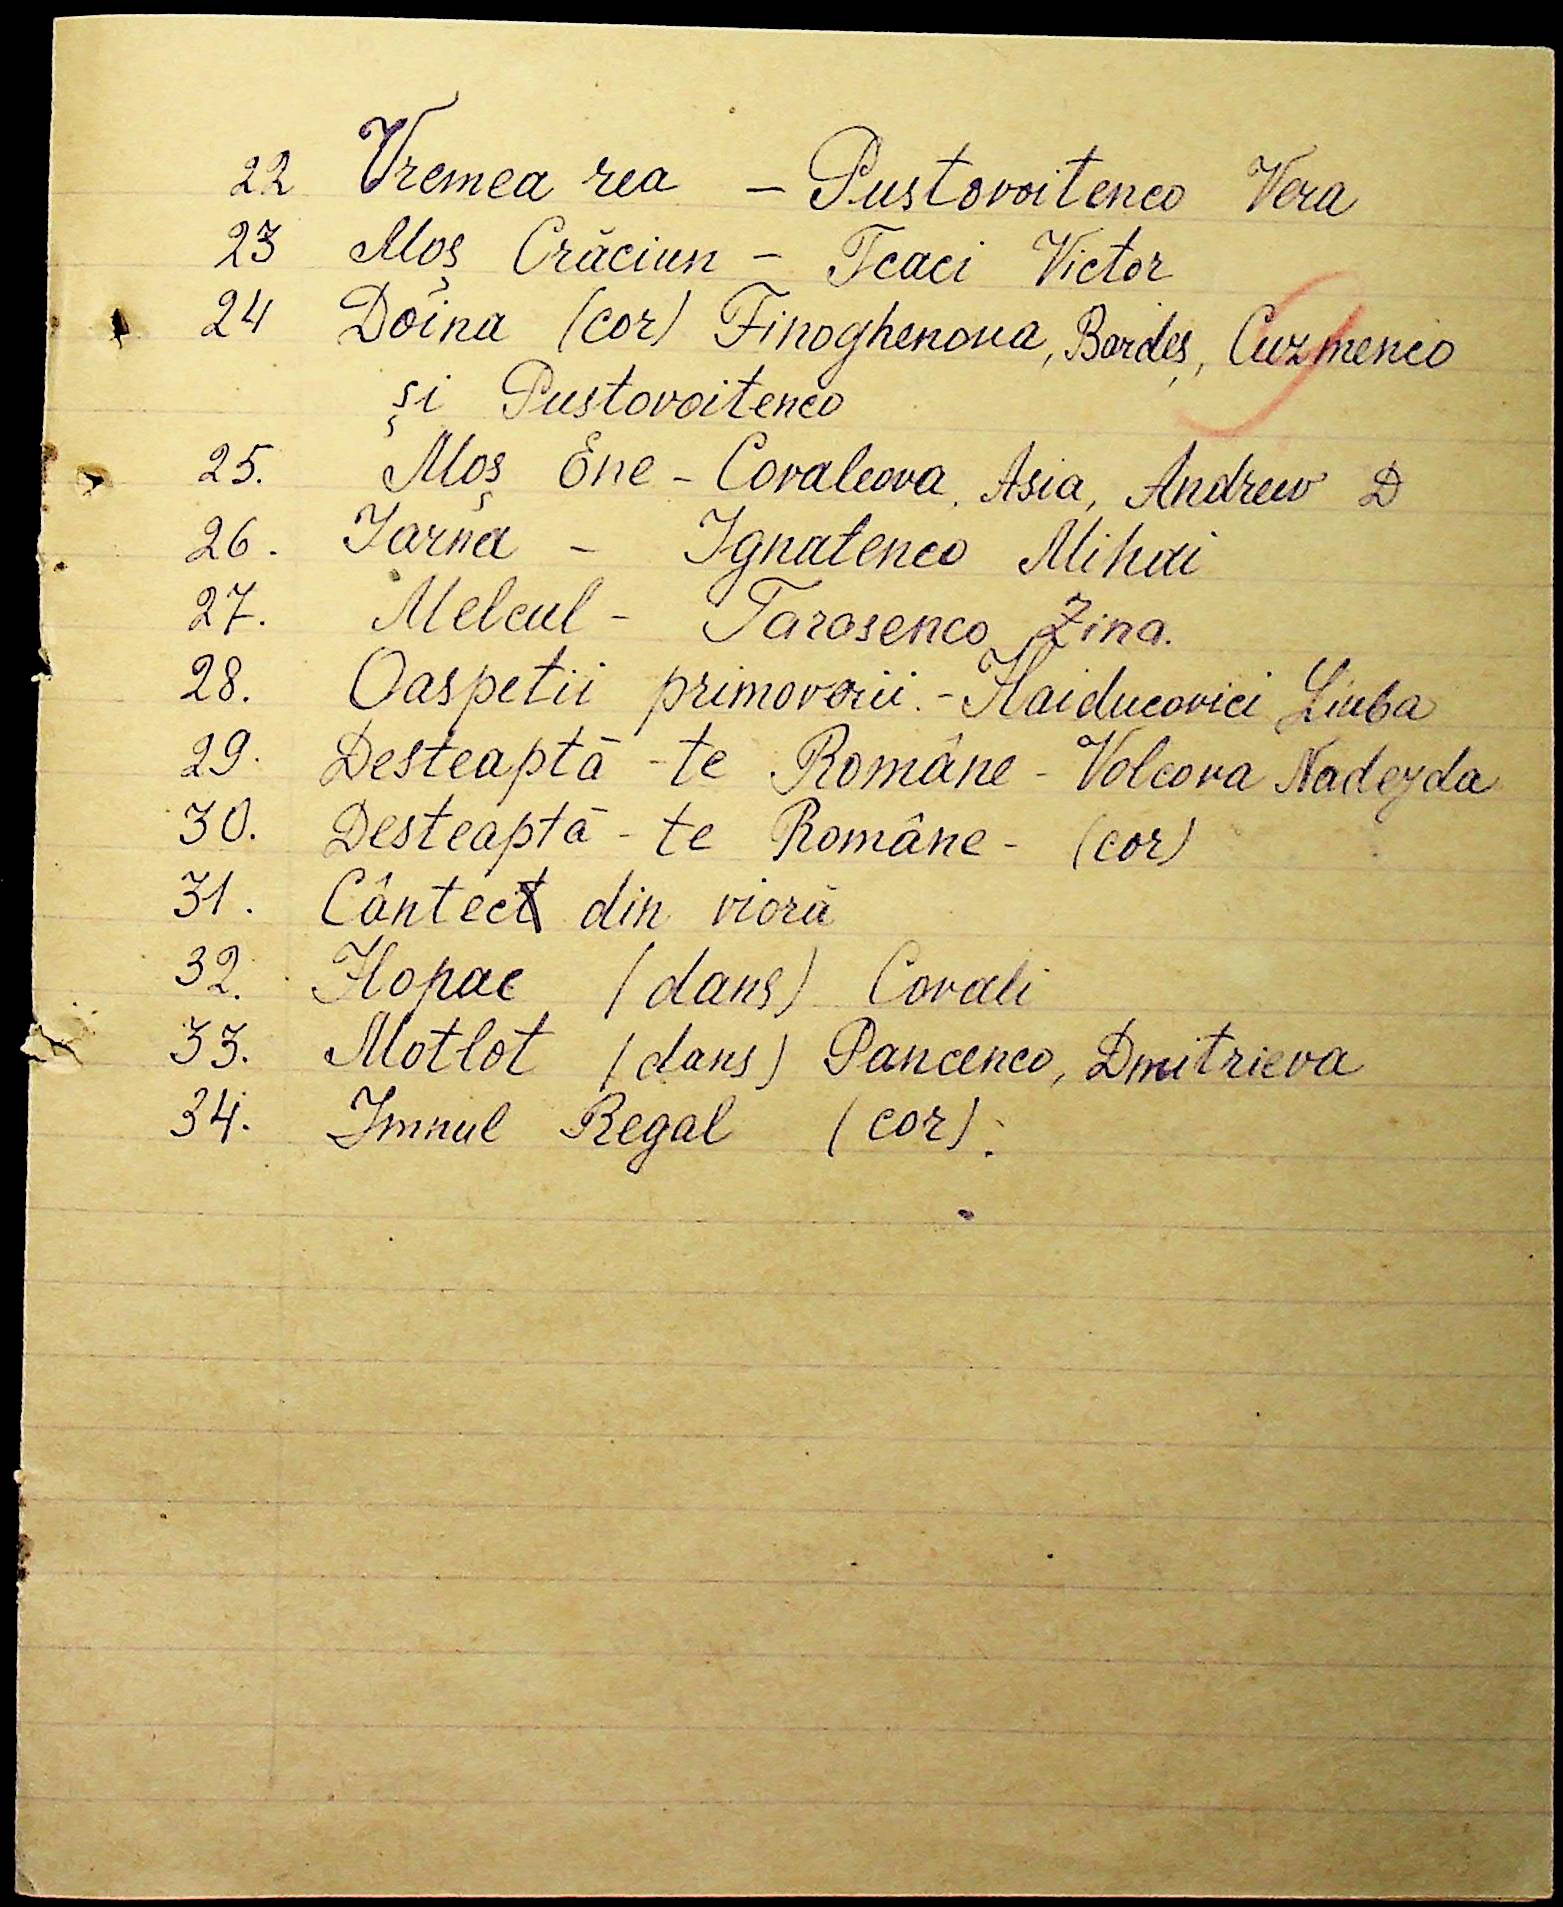 22 Vremea rea - Pustovoitenco Vera
23 Moș Crăciun - Tcaci Victor
24 Doina (cor) Finoghenova, Bordeș, Cuzmenco
și Pustovoitenco
25. Moș Ene - Covalcova, Asia, Andreev D
26. Iarna - Ignatenco Mihai
27. Melcul - Tarasenco Zina.
28. Oaspetii primoverii. - Haiducovici Liuba
29. Desteaptă-te Române - Volcova Nadejda
30. Desteaptă-te Române - (cor)
31. Cântec din vioră
32. Hopac (dans) Covali
33. Motlot (dans) Pancenco, Dmitrieva
34. Imnul Regal (cor).